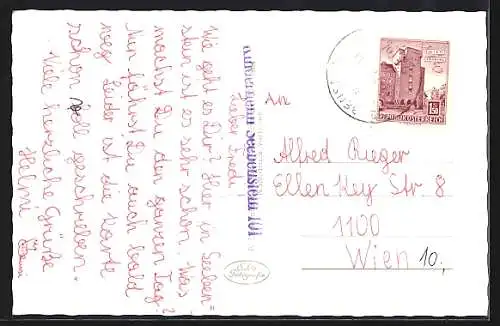 Lieber Fredi
Wie geht es Dir? Hier in Seeben=
stein ist es sehr schön. Was
machst Du den ganzen Tag?
Nun fährst Du auch bald
weg. Leider ist die Karte
schon voll geschrieben.
Viele herzliche Grüße
Helmi
An
Alfred Rieger
Ellen Key Str 8
1100
Wien 10,
REPUBLIK ÖSTERREICH
1.50